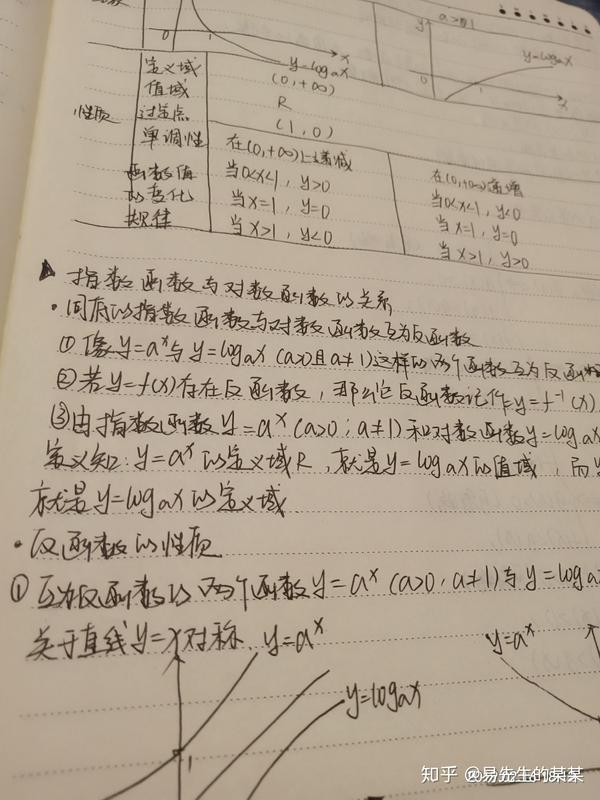 a>1
y
y=logax
0
1
x
0
1
x
y=logax
定义域
(0,+∞)
值域
R
性质
过定点
(1,0)
单调性
在(0,+∞)上递减
在(0,+∞)递增
函数值
的变化
规律
当0<x<1,y>0
当x=1,y=0
当x>1,y<0
当0<x<1,y<0
当x=1,y=0
当x>1,y>0
指数函数与对数函数的关系
·同底的指数函数与对数函数互为反函数
①像y=aˣ与y=logax(a>0且a≠1)这样的两个函数互为反函数
②若y=f(x)存在反函数,那么它反函数记作y=f⁻¹(x)
③由指数函数y=aˣ(a>0,a≠1)和对数函数y=logax
定义知:y=aˣ的定义域R,就是y=logax的值域,而
就是y=logax的定义域
·反函数的性质
①互为反函数的两个函数y=aˣ(a>0,a≠1)与y=loga
关于直线y=x对称
y=aˣ
y=logax
1
y=aˣ
知乎 @易先生的某某